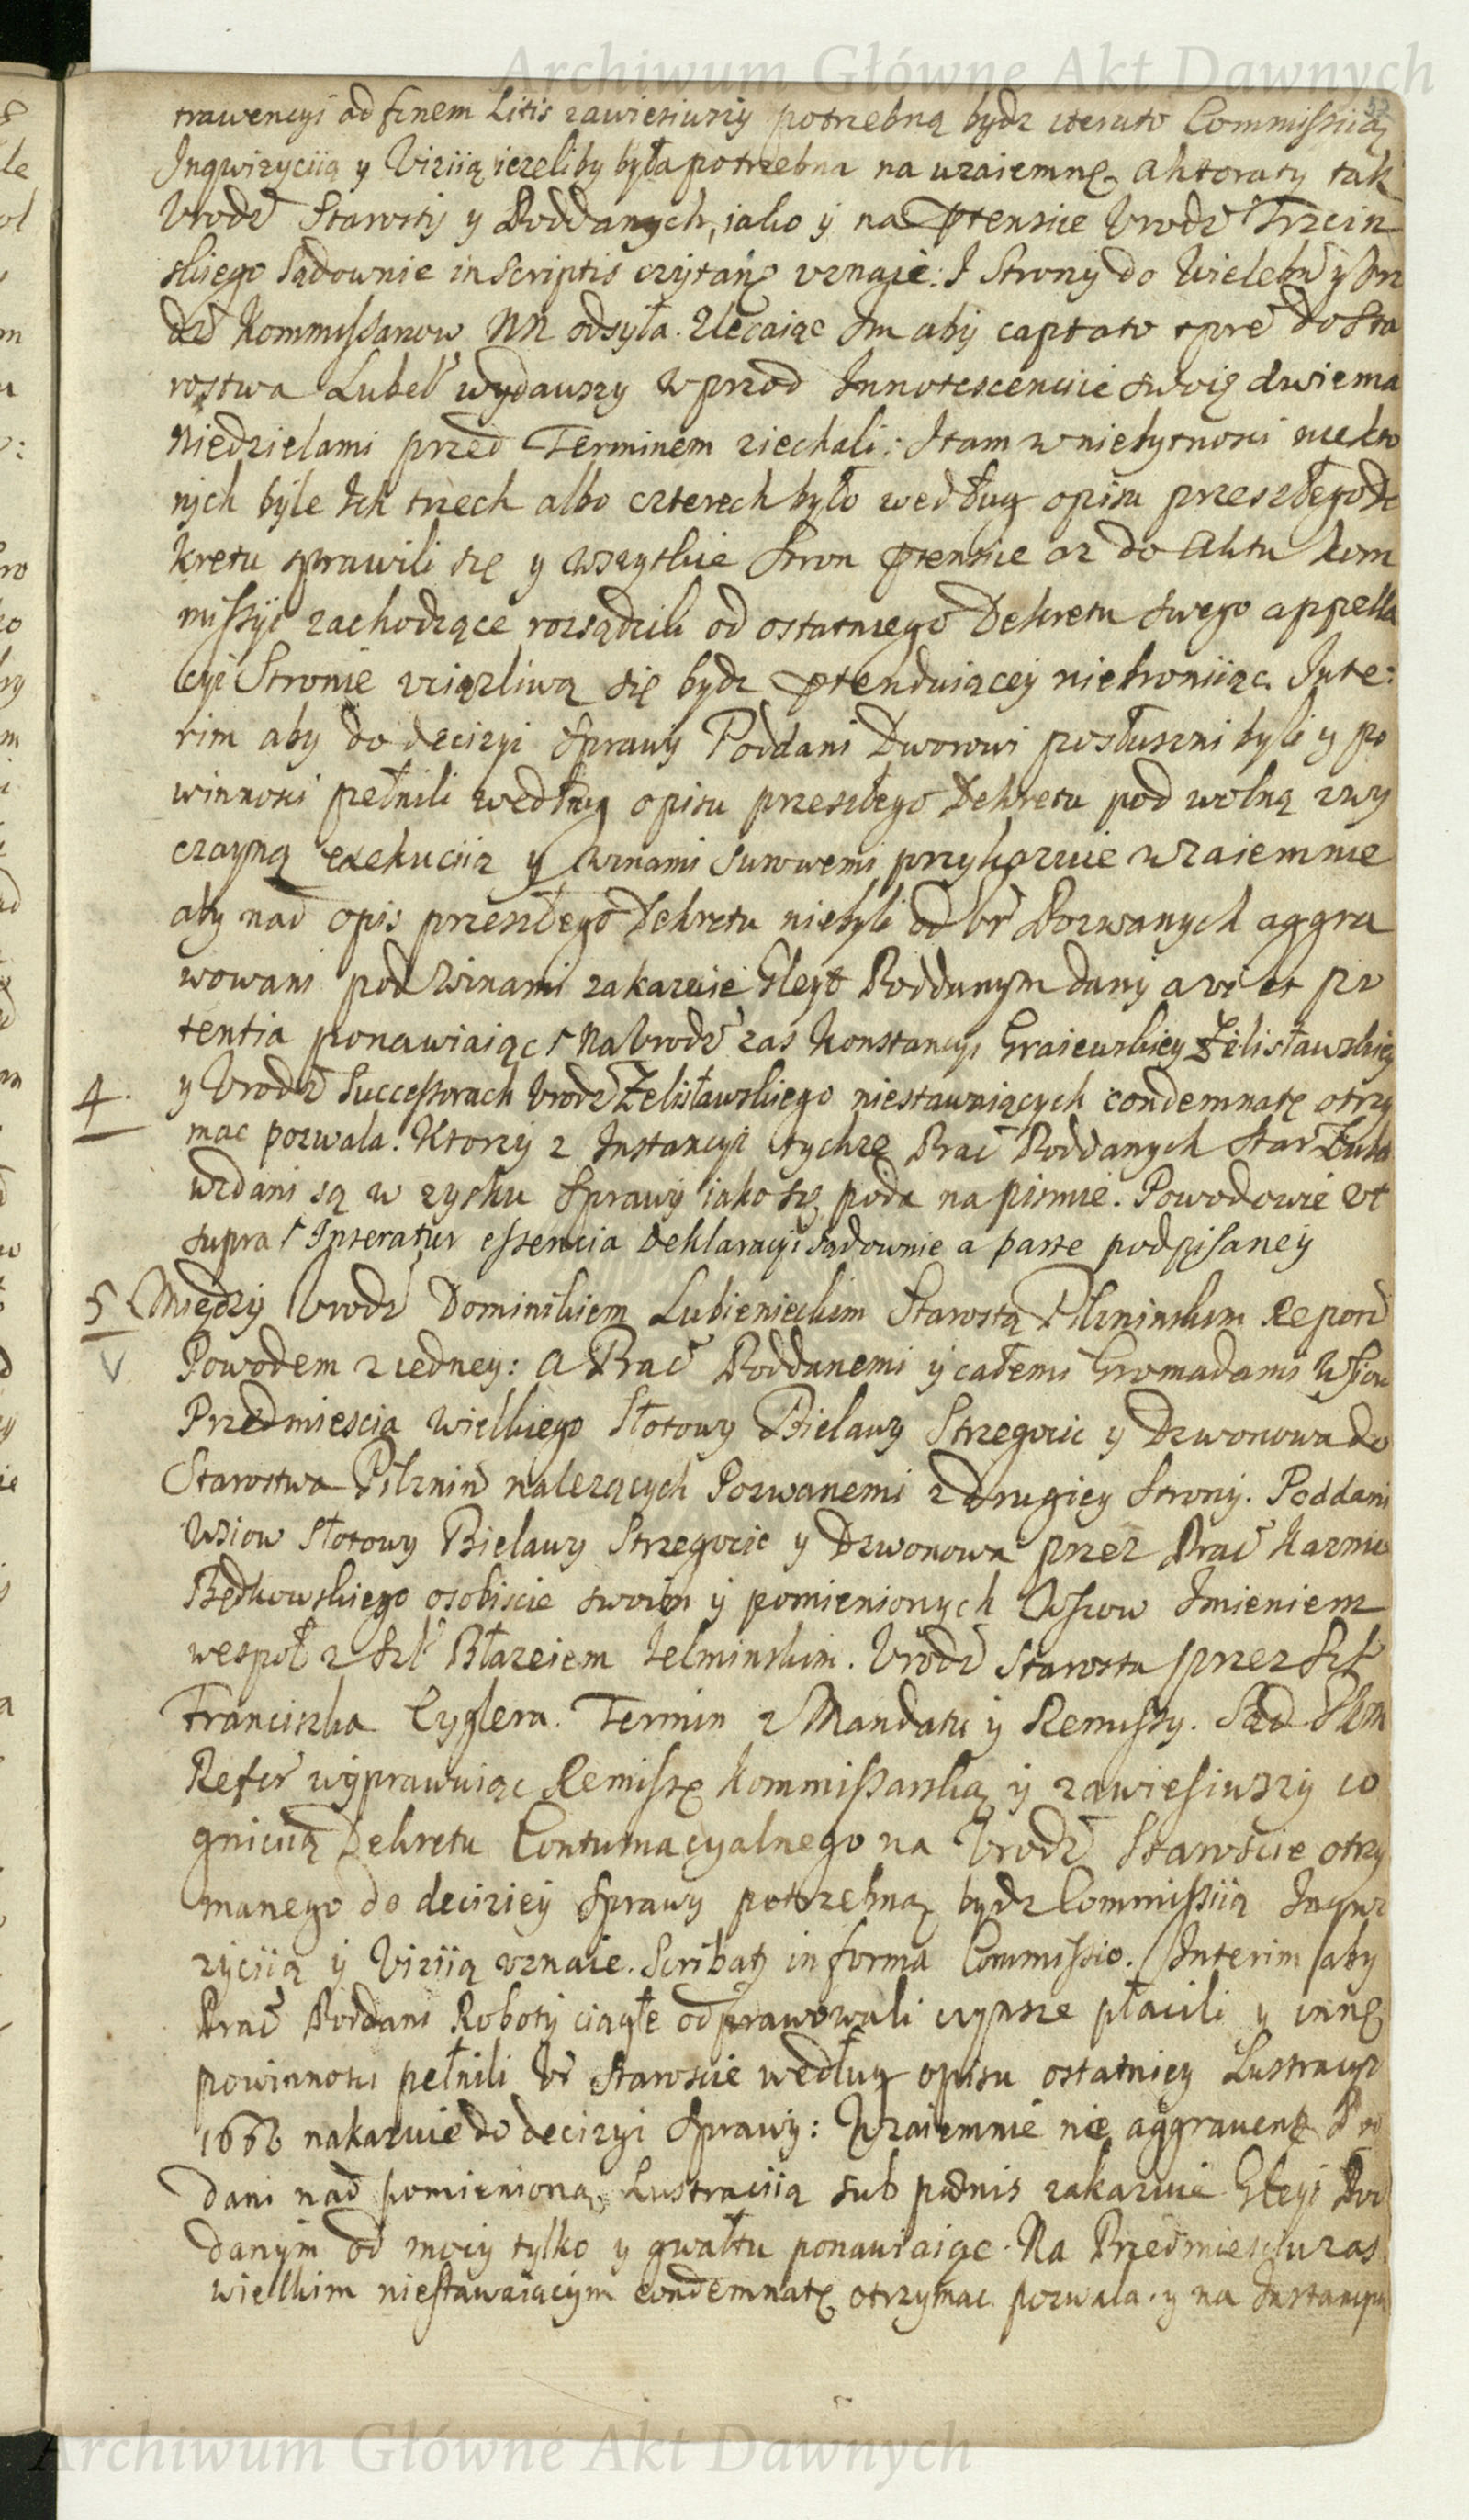 Archiwum Główne Akt Dawnych
trawencyi ad finem Litis zawiesiwszy potrzebną bydz iterato Commissiią
Inqwizyciią y Viziią iezeliby była potrzebna na wzaiemnę Aktoraty tak
Vrodz Starosty y Poddanych, iako y na ptensie Vrodz Trzcin
skiego Sądownie in Scriptis czytanę vznaie: I Strony do Wielebn y Vro
dz Kommissarzow NN odsyła. Zlecaiąc Im aby captato tpre do Sta
rostwa Lubel wydawszy wprzod Innotescencиie swoię dwiema
Niedzielami przed Terminem ziechali: I tam w niebytnosci niekto
rych byle Ich trzech albo czterech było według opisu przeszłego De
kretu sprawili się y wszytkie Stron ptensie az do Aktu kom
missyi zachodzące rozsądzili od ostatniego Dekretu swego appella
cyi Stronie vciązliwą się bydz ptenduiącey niebroniąc. Inte:
rim aby do decizyi Sprawy Poddani Dworowi posłuszni byli y po
winnosci pełnili według opisu przeszłego Dekretu pod wolną zwy
czayną exekuciią y winami surowemi przykazuie wzaiemnie
aby nad opis przeszłego Dekretu niebyli od Vr Pozwanych aggra
wowani pod winami zakazuie Gleyt Poddanym dany a vi et po
tentia ponawiaiąc Na Vrodz zas Konstancyi Graiewskiey Zelisławskiey
4. y Vrodz Successorach Vrodz Zelisławskiego niestawaiących condemnatę otrzy
mac pozwala. Ktorzy z Instancyi tychze Prac Poddanych Star Luba
wzdani są w zysku Sprawy iako się poda na pismie. Powodowie vt
supra Inseratur essencia Deklaracyi sądownie a parte podpisaney
5 Między Vrodz Dominikiem Lubienieckim Starostą Pilzninskim Repord
V Powodem z iedney: A Prac Poddanemi y całemi Gromadami Wsiow
Przedmiescia Wielkiego Słotowy Bielawy Strzegocic y Dzwonowa do
Starostwa Pilznin nalezących Pozwanemi z drugiey Strony. Poddani
Wsiow Słotowy Bielawy Strzegocic y Dzwonowa przez Prac Kazmie
Będkowskiego osobiscie swoim y pomienionych Wsiow Imieniem
wespoł z Szl Błazeiem Jelminskim. Vrodz Starosta przez Szl
Franciszka Cyglera. Termin z Mandatu y Remissy. Sąd JKM
Refer wyprawuiąc Remissę Kommissarską y zawiesiwszy co
gniciią Dekretu Contumacyalnego na Vrodz Staroscie otrzy
manego do deciziey Sprawy potrzebną bydz Commissiią Inqwi
zyciią y Viziią vznaie. Scribatz in forma Commissio. Interim aby
Prac Poddani Roboty ciągłe odprawowali czynsze płacili y innę
powinnosci pełnili Vr Staroscie według opisu ostatniey Lustracyi
1666 nakazuie do decizyi Sprawy: Wzaiemnie nie aggrauent Pod
dani nad pomienioną Lustraciią sub pœnis zakazuie Gleyt Pod
danym od mocy tylko y gwałtu ponawiaiąc. Na Przedmiesciu zas
wielkim niestawaiącym condemnatę otrzymac pozwala. y na Instancyą
Archiwum Główne Akt Dawnych